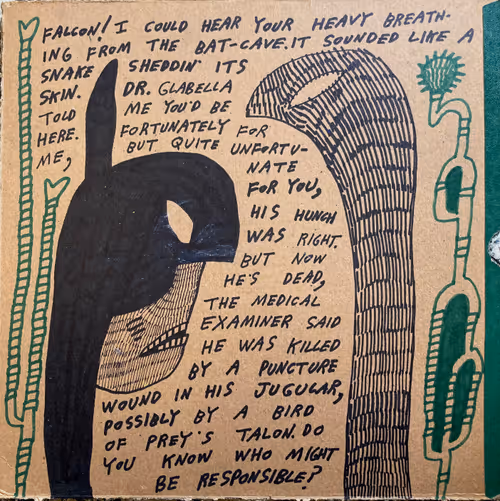 FALCON! I COULD HEAR YOUR HEAVY BREATH-
ING FROM THE BAT-CAVE. IT SOUNDED LIKE A
SNAKE SHEDDIN' ITS
SKIN. DR. GLABELLA
TOLD ME YOU'D BE
HERE. FORTUNATELY FOR
ME, BUT QUITE UNFORTU-
NATE
FOR YOU,
HIS HUNCH
WAS RIGHT.
BUT NOW
HE'S DEAD,
THE MEDICAL
EXAMINER SAID
HE WAS KILLED
BY A PUNCTURE
WOUND IN HIS JUGULAR,
POSSIBLY BY A BIRD
OF PREY'S TALON. DO
YOU KNOW WHO MIGHT
BE RESPONSIBLE?